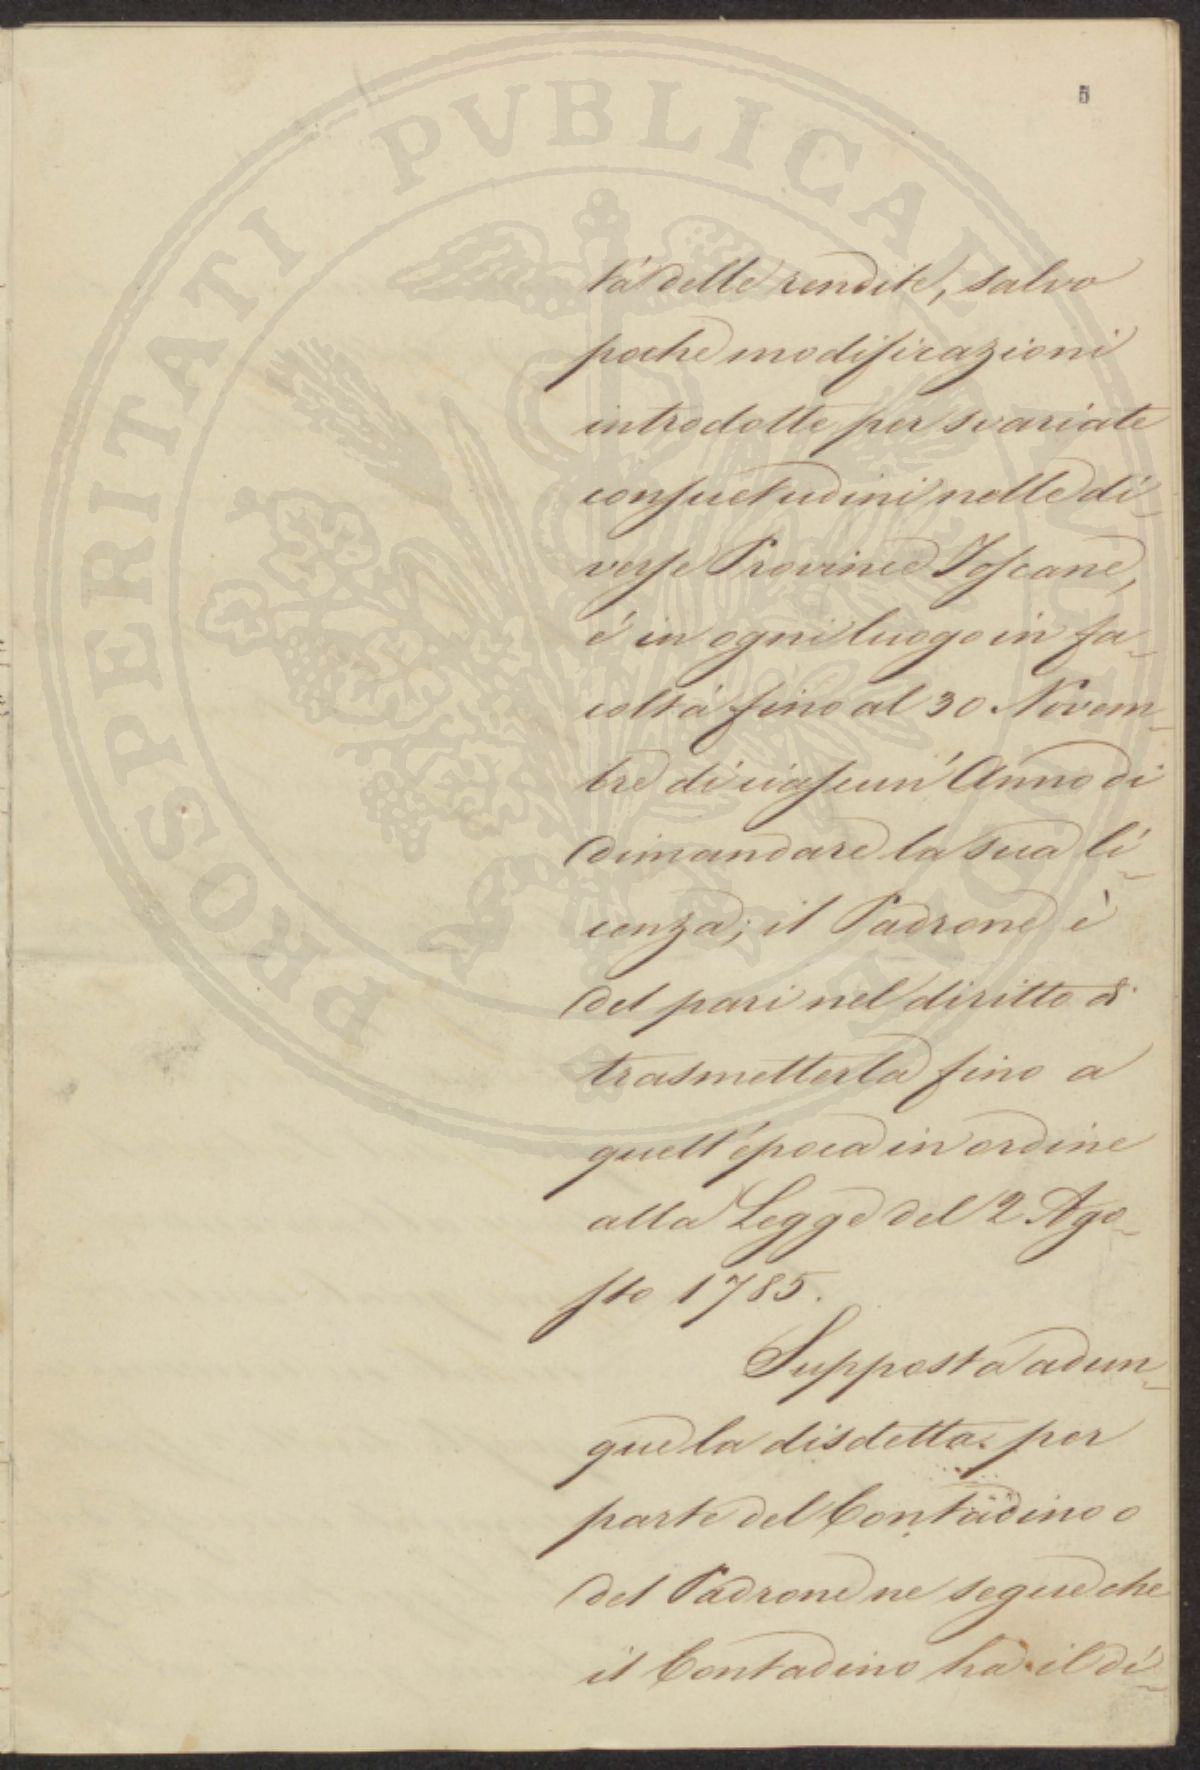 5
PROSPERITATI PVBLICAE
tà delle rendite, salvo
poche modificazioni
introdotte per svariate
consuetudini nelle di-
verse Provincie Toscane,
é in ogni luogo in fa-
coltà fino al 30 Novem-
bre di ciascun' Anno di
dimandare la sua li-
cenza; il Padrone è
del pari nel diritto di
trasmetterla fino a
quell'época in ordine
alla Legge del 2 Ago-
sto 1785.
Supposta adun-
que la disdetta per
parte del Contadino o
del Padrone ne segue che
il Contadino ha il di-